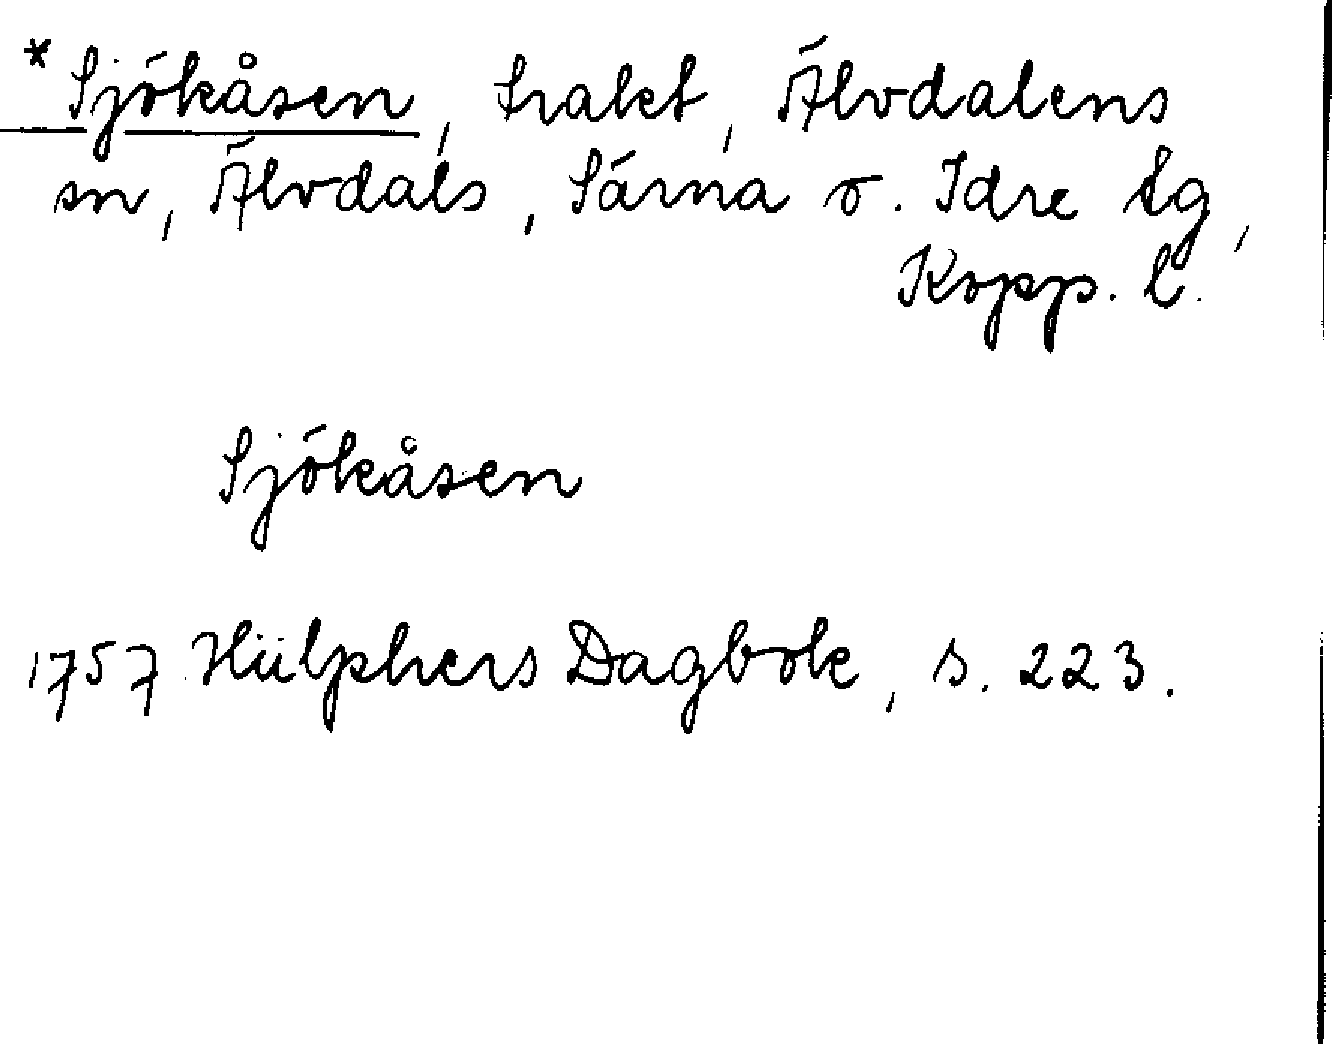 * Sjökåsen, trakt, Älvdalens
sn, Älvdals, Särna o. Idre tg,
Kopp. l.
Sjökåsen
1757 Hülphers Dagbok, s. 223.